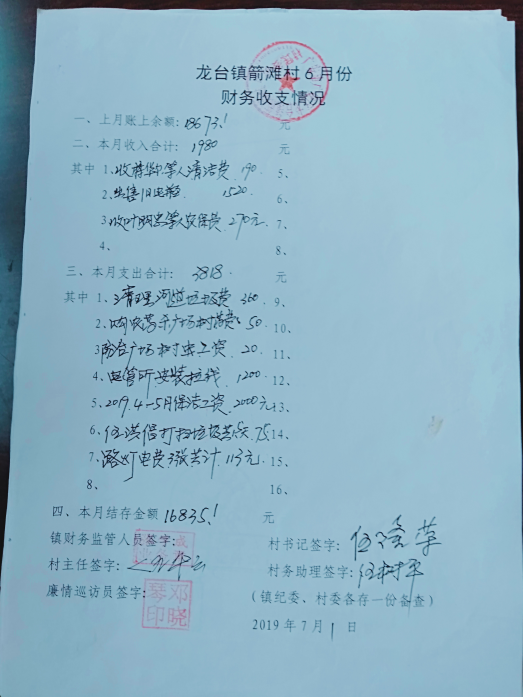 龙台镇箭滩村6月份
财务收支情况
一、上月账上余额:18673.1 元
二、本月收入合计: 1980 元
其中 1、收蒋华等人清洁费 190 5、
2、出售旧电 1520 6、
3、收叶明忠等人安保费 270元 7、
4、 8、
三、本月支出合计: 3818. 元
其中 1、清理河道垃圾费 360 9、
2、购农药杀广场树 费: 50 10、
3防治广场树虫工资. 20 11、
4、电管所安装拉线. 1200 12、
5、2019.4-5月保洁工资. 2000元 13、
6、伍洪 打扫垃圾 75 14、
7、路灯电费3张共计. 113元. 15、
8、 16、
四、本月结存金额 16835.1 元
镇财务监管人员签字: 村书记签字:
村主任签字: 村务助理签字: 伍树平
廉情巡访员签字: 邓晓琴印 (镇纪委、村委各存一份备查)
2019年7月1日